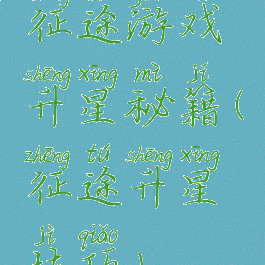 征途游戏
shēng xīng mì jí
升星秘籍(
zhēng tú shēng xīng
征途升星
jì qiǎo
技巧)